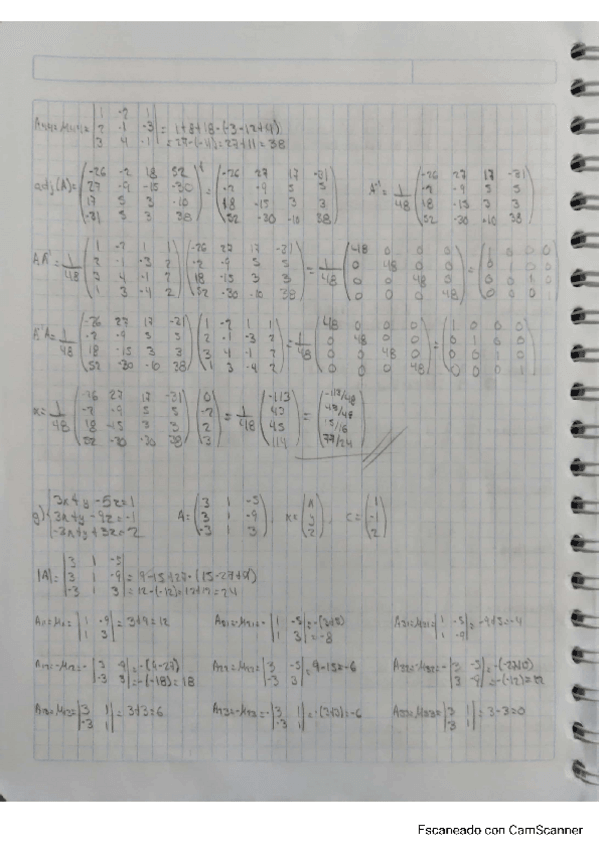 A₄₄=M₄₄= |1 -2 1; 2 -1 -3; 3 4 -1| = 1+8+18-(-3-12+4)
= 27-(-11)=27+11=38
adj(A)= (-26 -2 18 52; 27 -9 -15 -30; 17 5 3 -10; -31 5 3 38)ᵗ = (-26 27 17 -31; -2 -9 5 5; 18 -15 3 3; 52 -30 -10 38) A⁻¹= 1/48 (-26 27 17 -31; -2 -9 5 5; 18 -15 3 3; 52 -30 -10 38)
AA⁻¹= 1/48 (1 -2 1 1; 2 -1 -3 2; 3 4 -1 2; 1 3 -4 2) (-26 27 17 -31; -2 -9 5 5; 18 -15 3 3; 52 -30 -10 38) = 1/48 (48 0 0 0; 0 48 0 0; 0 0 48 0; 0 0 0 48) = (1 0 0 0; 0 1 0 0; 0 0 1 0; 0 0 0 1)
A⁻¹A= 1/48 (-26 27 17 -31; -2 -9 5 5; 18 -15 3 3; 52 -30 -10 38) (1 -2 1 1; 2 -1 -3 2; 3 4 -1 2; 1 3 -4 2) = 1/48 (48 0 0 0; 0 48 0 0; 0 0 48 0; 0 0 0 48) = (1 0 0 0; 0 1 0 0; 0 0 1 0; 0 0 0 1)
x= 1/48 (-26 27 17 -31; -2 -9 5 5; 18 -15 3 3; 52 -30 -10 38) (0; -2; 2; 3) = 1/48 (-113; 43; 45; 114) =
3x+y-5z=1
3x+y-9z=-1 A= (3 1 -5; 3 1 -9; -3 1 3), x= (x; y; z), c= (1; -1; 2)
-3x+y+3z=2
|A|= |3 1 -5; 3 1 -9; -3 1 3| = 9-15+27-(15-27+9)
= 12-(-12)=12+12=24
A₁₁=M₁₁= |1 -9; 1 3| = 3+9=12 A₂₁=-M₂₁=- |1 -5; 1 3| =-(3+5)=-8 A₃₁=M₃₁= |1 -5; 1 -9| =-9+5=-4
A₁₂=-M₁₂=- |3 -9; -3 3| =-(9-27)=-(-18)=18 A₂₂=M₂₂= |3 -5; -3 3| =9-15=-6 A₃₂=-M₃₂=- |3 -5; 3 -9| =-(-12)=12
A₁₃=M₁₃= |3 1; -3 1| =3+3=6 A₂₃=-M₂₃=- |3 1; -3 1| =-(3+3)=-6 A₃₃=M₃₃= |3 1; 3 1| =3-3=0
Escaneado con CamScanner